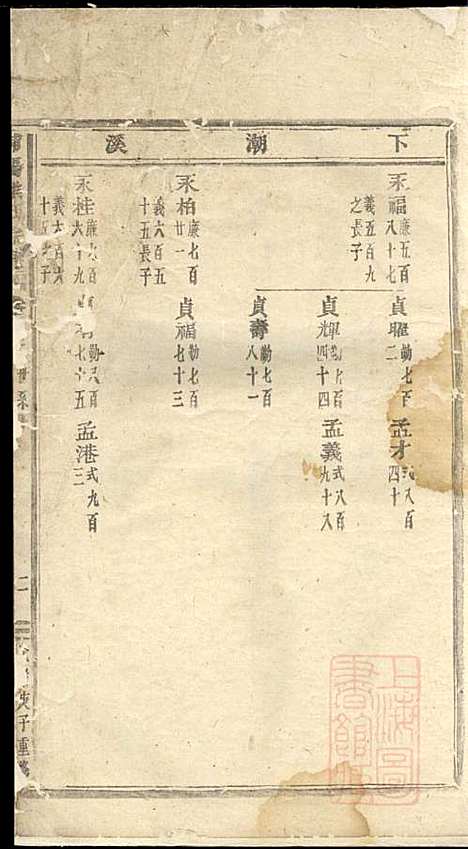 下潮溪
永福廉五百八十七
義五百九之長子
貞曜勒七百二
孟才式八百四十
貞輝勒七百四十四
孟義式八百九十八
貞壽勒七百八十一
永柏廉七百廿一
義六百五十五長子
貞福勒七百七十三
永桂廉九百六十九
義六百六十五長子
勒八百七十五
孟港式九百三
二
上海圖書館藏